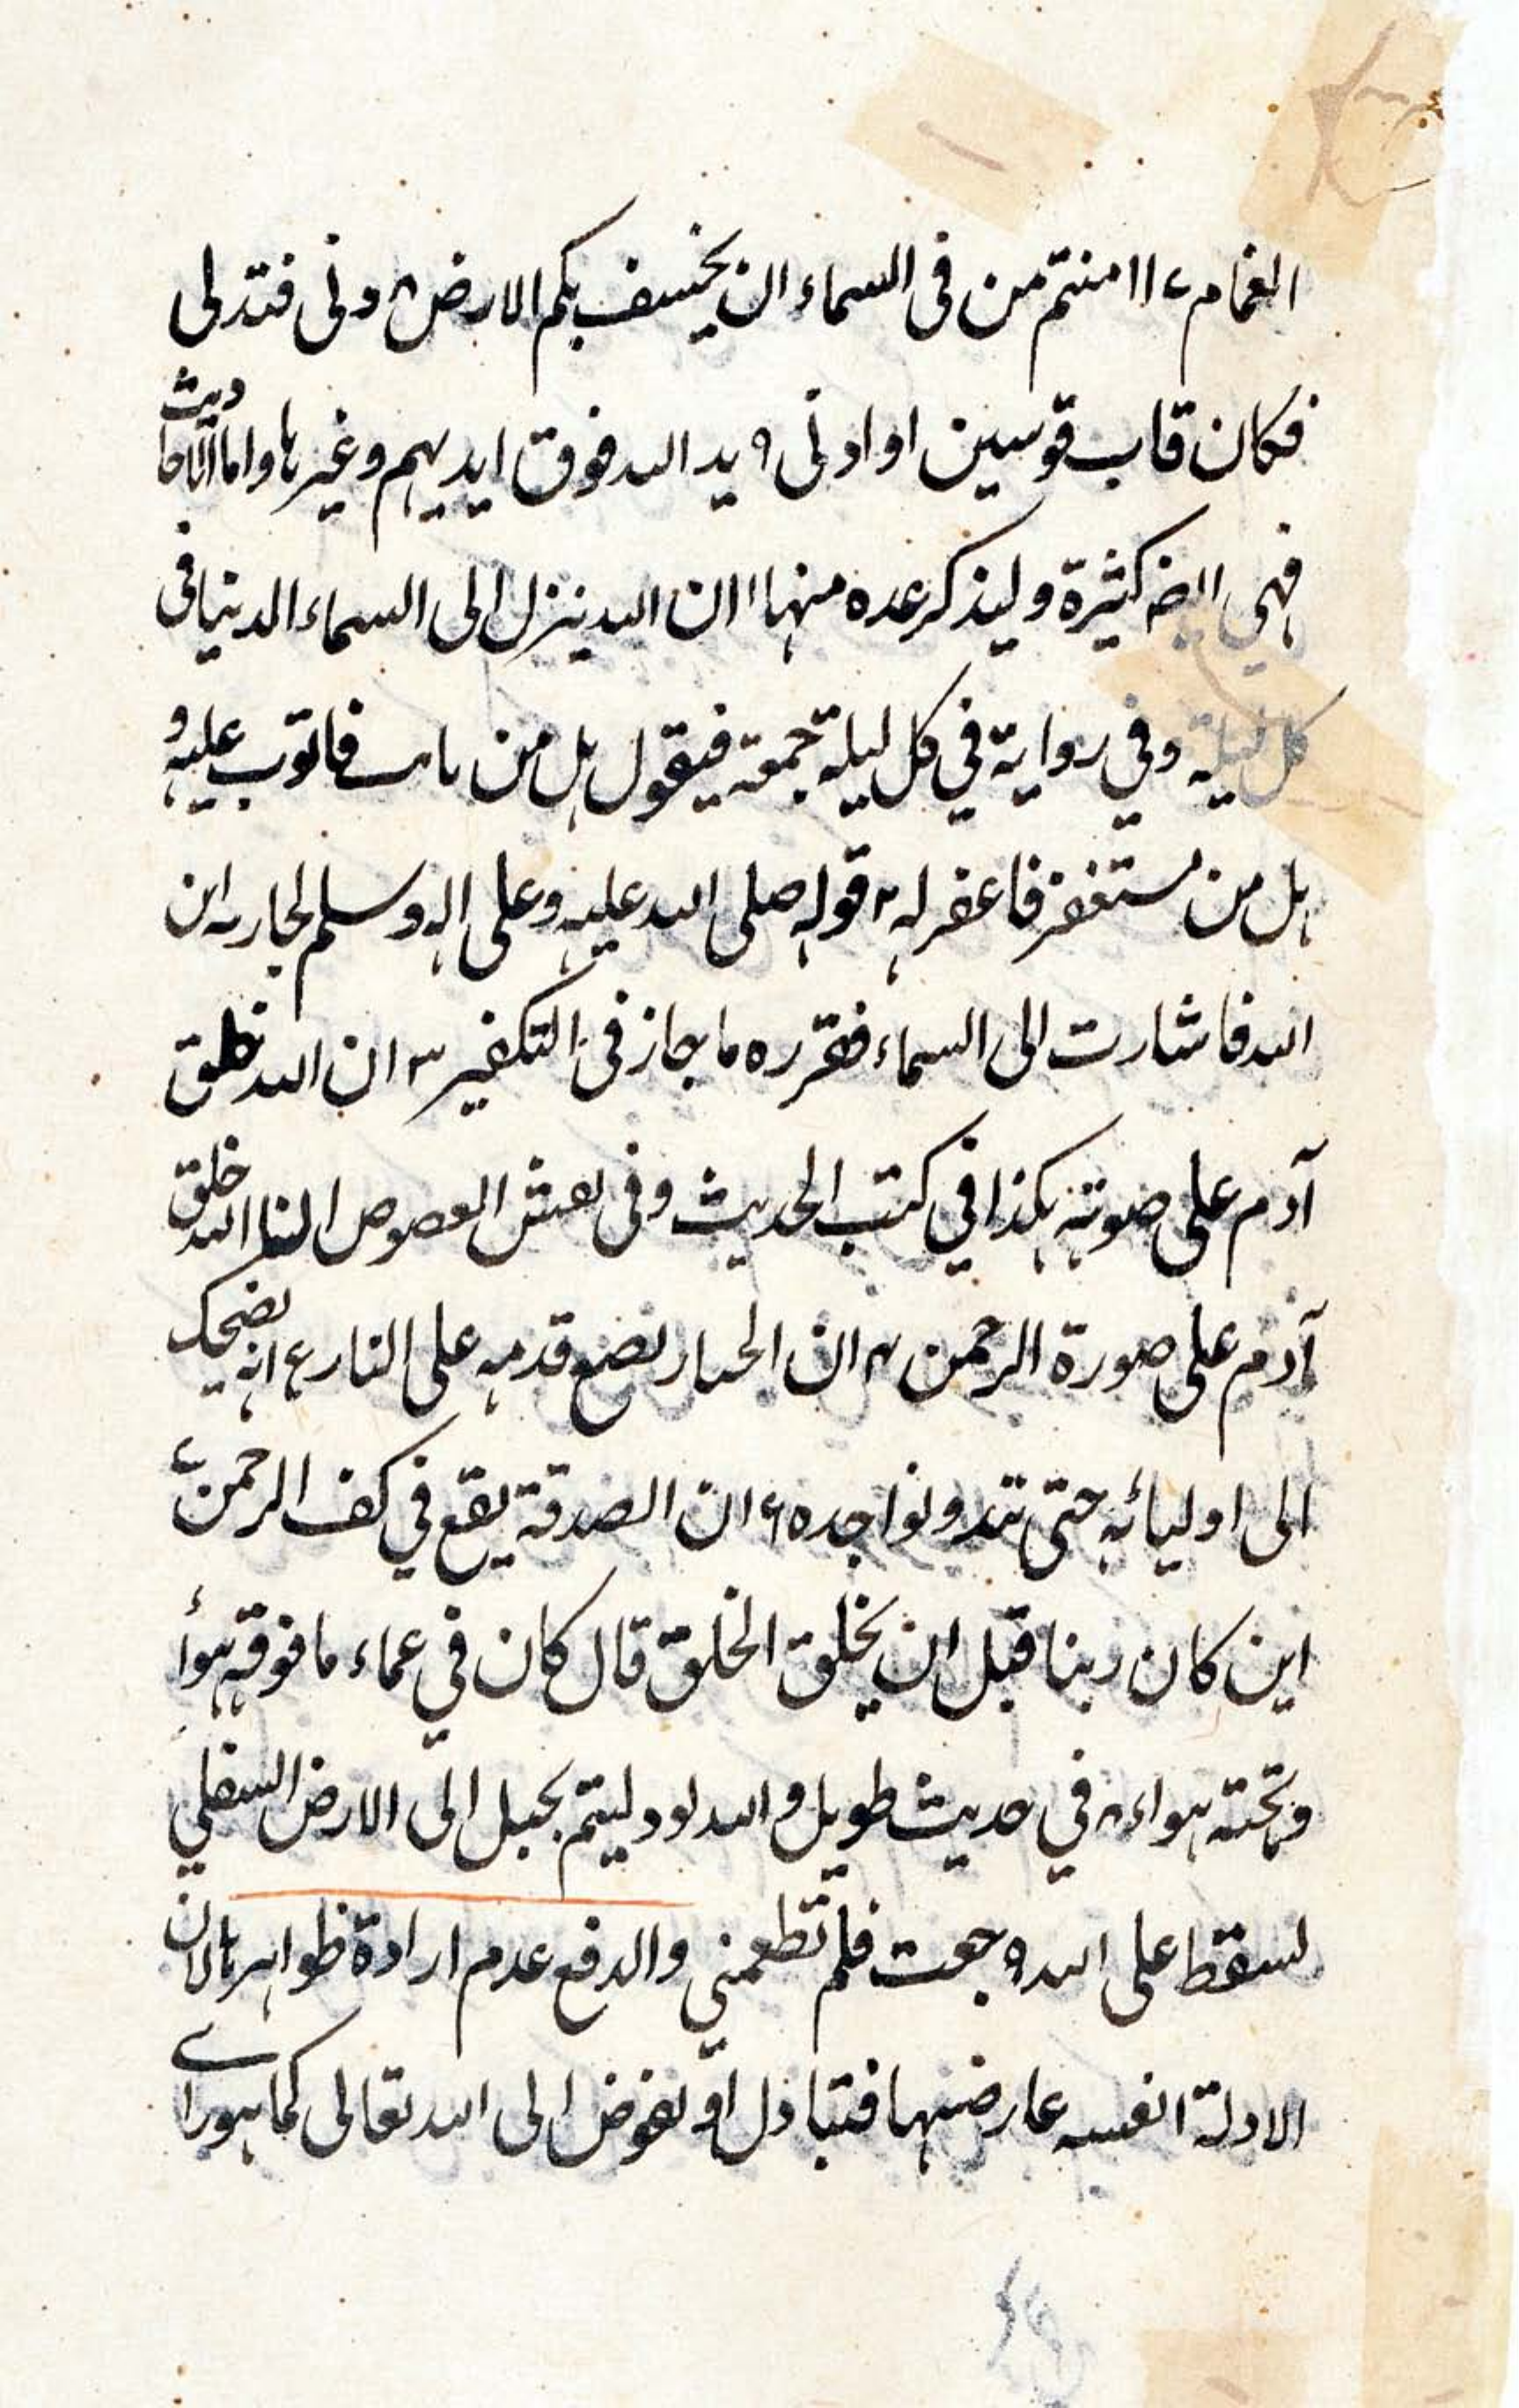 الغمام ۷ اامنتم من فى السماء ان يخسف بكم الارض ۸ دنى فتدلى
فكان قاب قوسين او ادنى ۹ يد الله فوق ايديهم وغيرها واما الاحاديث
فهى ايضا كثيرة وليذكر عده منها ۱ ان الله ينزل الى السماء الدنيا فى
كل ليلة وفي رواية في كل ليلة جمعة فيقول هل من تائب فاتوب عليه و
هل من مستغفر فاغفر له ۲ قوله صلى الله عليه وعلى اله وسلم لجارية اين
الله فاشارت الى السماء فقرره ما جاز فى التكفير ۳ ان الله خلق
آدم على صوته هكذا في كتب الحديث وفى بعض النصوص ان الله خلق
آدم على صورة الرحمن ۴ ان الجبار يضع قدمه على النار ۵ انه يضحك
الى اوليائه حتى تبدو نواجده ۶ ان الصدقة يقع في كف الرحمن ۷
اين كان ربنا قبل ان يخلق الخلق قال كان في عماء ما فوقه هوأ
وتحته هواء ۸ في حديث طويل والله لو دليتم بحبل الى الارض السفلي
لسقط على الله ۹ جعت فلم تطعمني والدفع عدم ارادة ظواهرها لان
الادلة انفسه عارضتها فتباول او يفوض الى الله تعالى كما هو راے